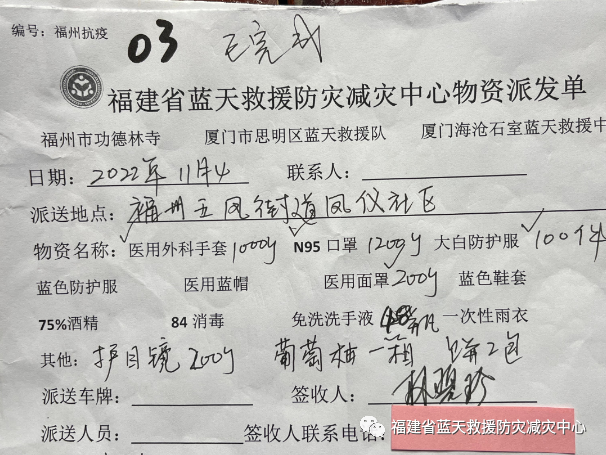 编号：福州抗疫 03 已完成
福建省蓝天救援防灾减灾中心物资派发单
福州市功德林寺 厦门市思明区蓝天救援队 厦门海沧石室蓝天救援中
日期：2022年11月4 联系人：
派送地点：福州五凤街道凤仪社区
物资名称：医用外科手套1000 N95 口罩1200 大白防护服100件
蓝色防护服 医用蓝帽 医用面罩200 蓝色鞋套
75%酒精 84 消毒 免洗洗手液 瓶 一次性雨衣
其他：护目镜200 葡萄柚一箱 2包
派送车牌： 签收人：
派送人员： 签收人联系电话：
福建省蓝天救援防灾减灾中心